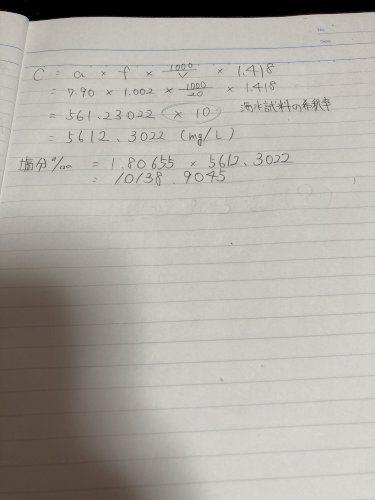 No.
Date
C = a × f × 1000/V × 1.418
= 7.90 × 1.002 × 1000/20 × 1.418
= 561.23022 × 10 海水試料の希釈率
= 5612.3022 (mg/L)
塩分‰ = 1.80655 × 5612.3022
= 10138.9045